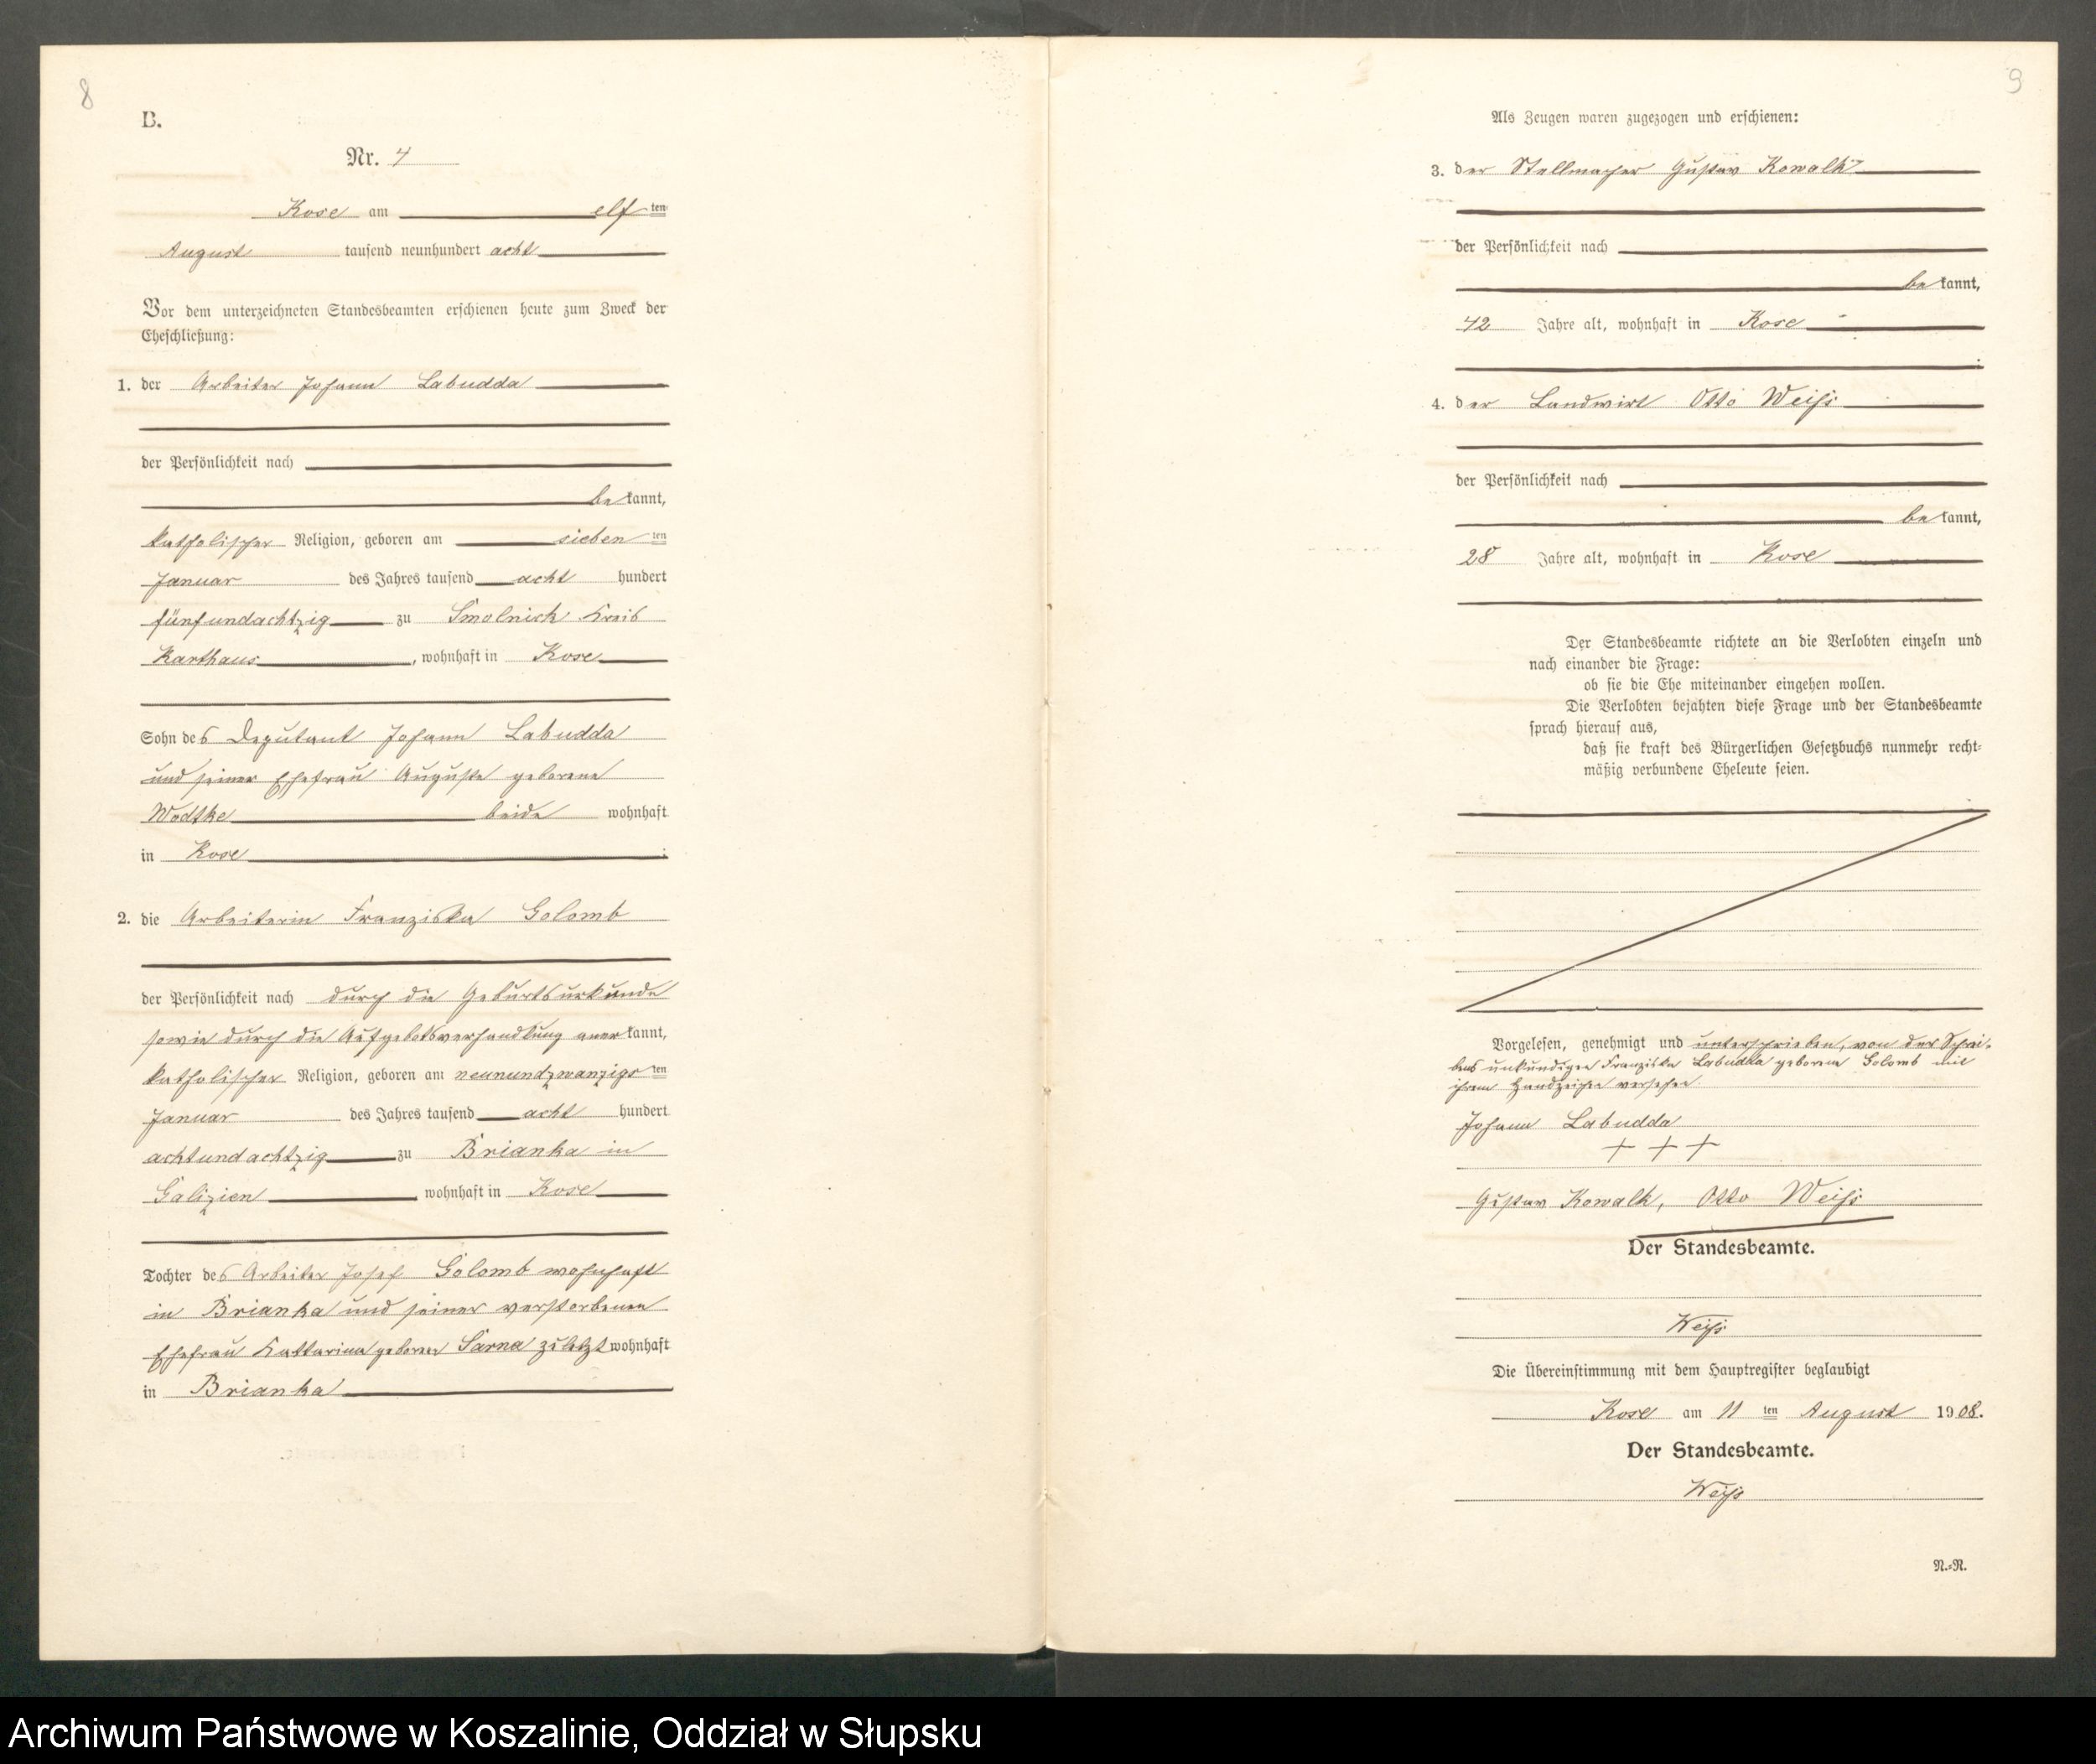 8
B.
Nr. 4
Kose am elf ten
August tausend neunhundert acht
Vor dem unterzeichneten Standesbeamten erschienen heute zum Zweck der
Eheschließung:
1. der Arbeiter Johann Labudda
der Persönlichkeit nach
be kannt,
katholischer Religion, geboren am sieben ten
Januar des Jahres tausend acht hundert
fünfundachtzig zu Smolnick Kreis
Karthaus, wohnhaft in Kose
Sohn des Deputant Johann Labudda
und seiner Ehefrau Auguste geborene
Wodtke beide wohnhaft
in Kose.
2. die Arbeiterin Franziska Golomb
der Persönlichkeit nach durch die Geburtsurkunde
sowie durch die Aufgebotsverhandlung anerkannt,
katholischer Religion, geboren am neunundzwanzigs ten
Januar des Jahres tausend acht hundert
achtundachtzig zu Brianka in
Galizien, wohnhaft in Kose
Tochter des Arbeiter Josef Golomb wohnhaft
in Brianka und seiner verstorbenen
Ehefrau Kattarina geboren Sarna zuletzt wohnhaft
in Brianka
9
Als Zeugen waren zugezogen und erschienen:
3. der Stellmacher Gustav Kowalk
der Persönlichkeit nach
be kannt,
42 Jahre alt, wohnhaft in Kose
4. der Landwirt Otto Weiß
der Persönlichkeit nach
be kannt,
28 Jahre alt, wohnhaft in Kose
Der Standesbeamte richtete an die Verlobten einzeln und
nach einander die Frage:
ob sie die Ehe miteinander eingehen wollen.
Die Verlobten bejahten diese Frage und der Standesbeamte
sprach hierauf aus,
daß sie kraft des Bürgerlichen Gesetzbuchs nunmehr recht-
mäßig verbundene Eheleute seien.
Vorgelesen, genehmigt und unterschrieben, von der Schrei-
bens unkundigen Franziska Labudda geborene Golomb mit
ihrem Handzeichen versehen
Johann Labudda
+ + +
Gustav Kowalk, Otto Weiß
Der Standesbeamte.
Weiß
Die Übereinstimmung mit dem Hauptregister beglaubigt
Kose am 11 ten August 1908.
Der Standesbeamte.
Weiß
N.-N.
Archiwum Państwowe w Koszalinie, Oddział w Słupsku